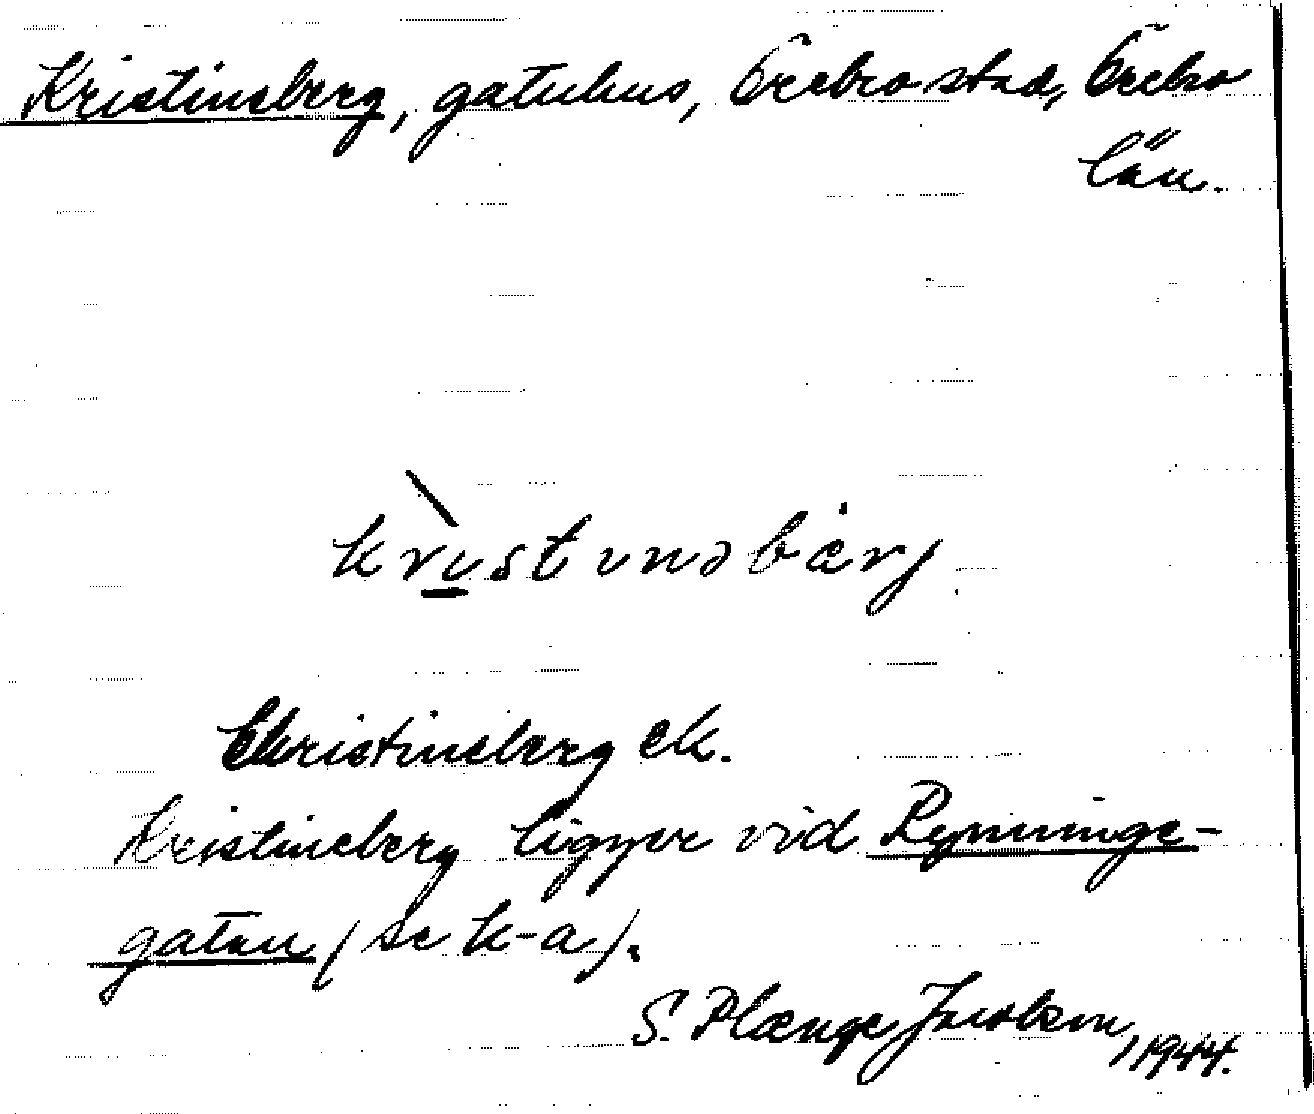 Kristineberg, gatuhus, Örebro stad, Örebro
län.
krıstınəbærj
Christineberg ek.
Kristineberg ligger vid Rynninge-
gatan (se k-a).
S. Plænge Jacobson, 1944.